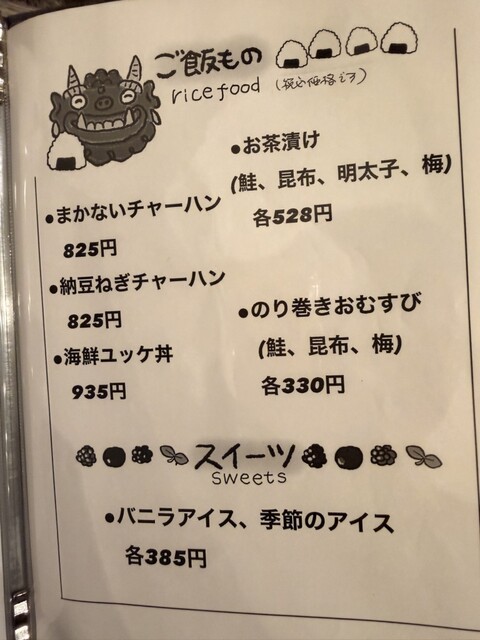 ご飯もの
rice food (税込価格です)
●まかないチャーハン
825円
●納豆ねぎチャーハン
825円
●海鮮ユッケ丼
935円
●お茶漬け
(鮭、昆布、明太子、梅)
各528円
●のり巻きおむすび
(鮭、昆布、梅)
各330円
スイーツ
sweets
●バニラアイス、季節のアイス
各385円